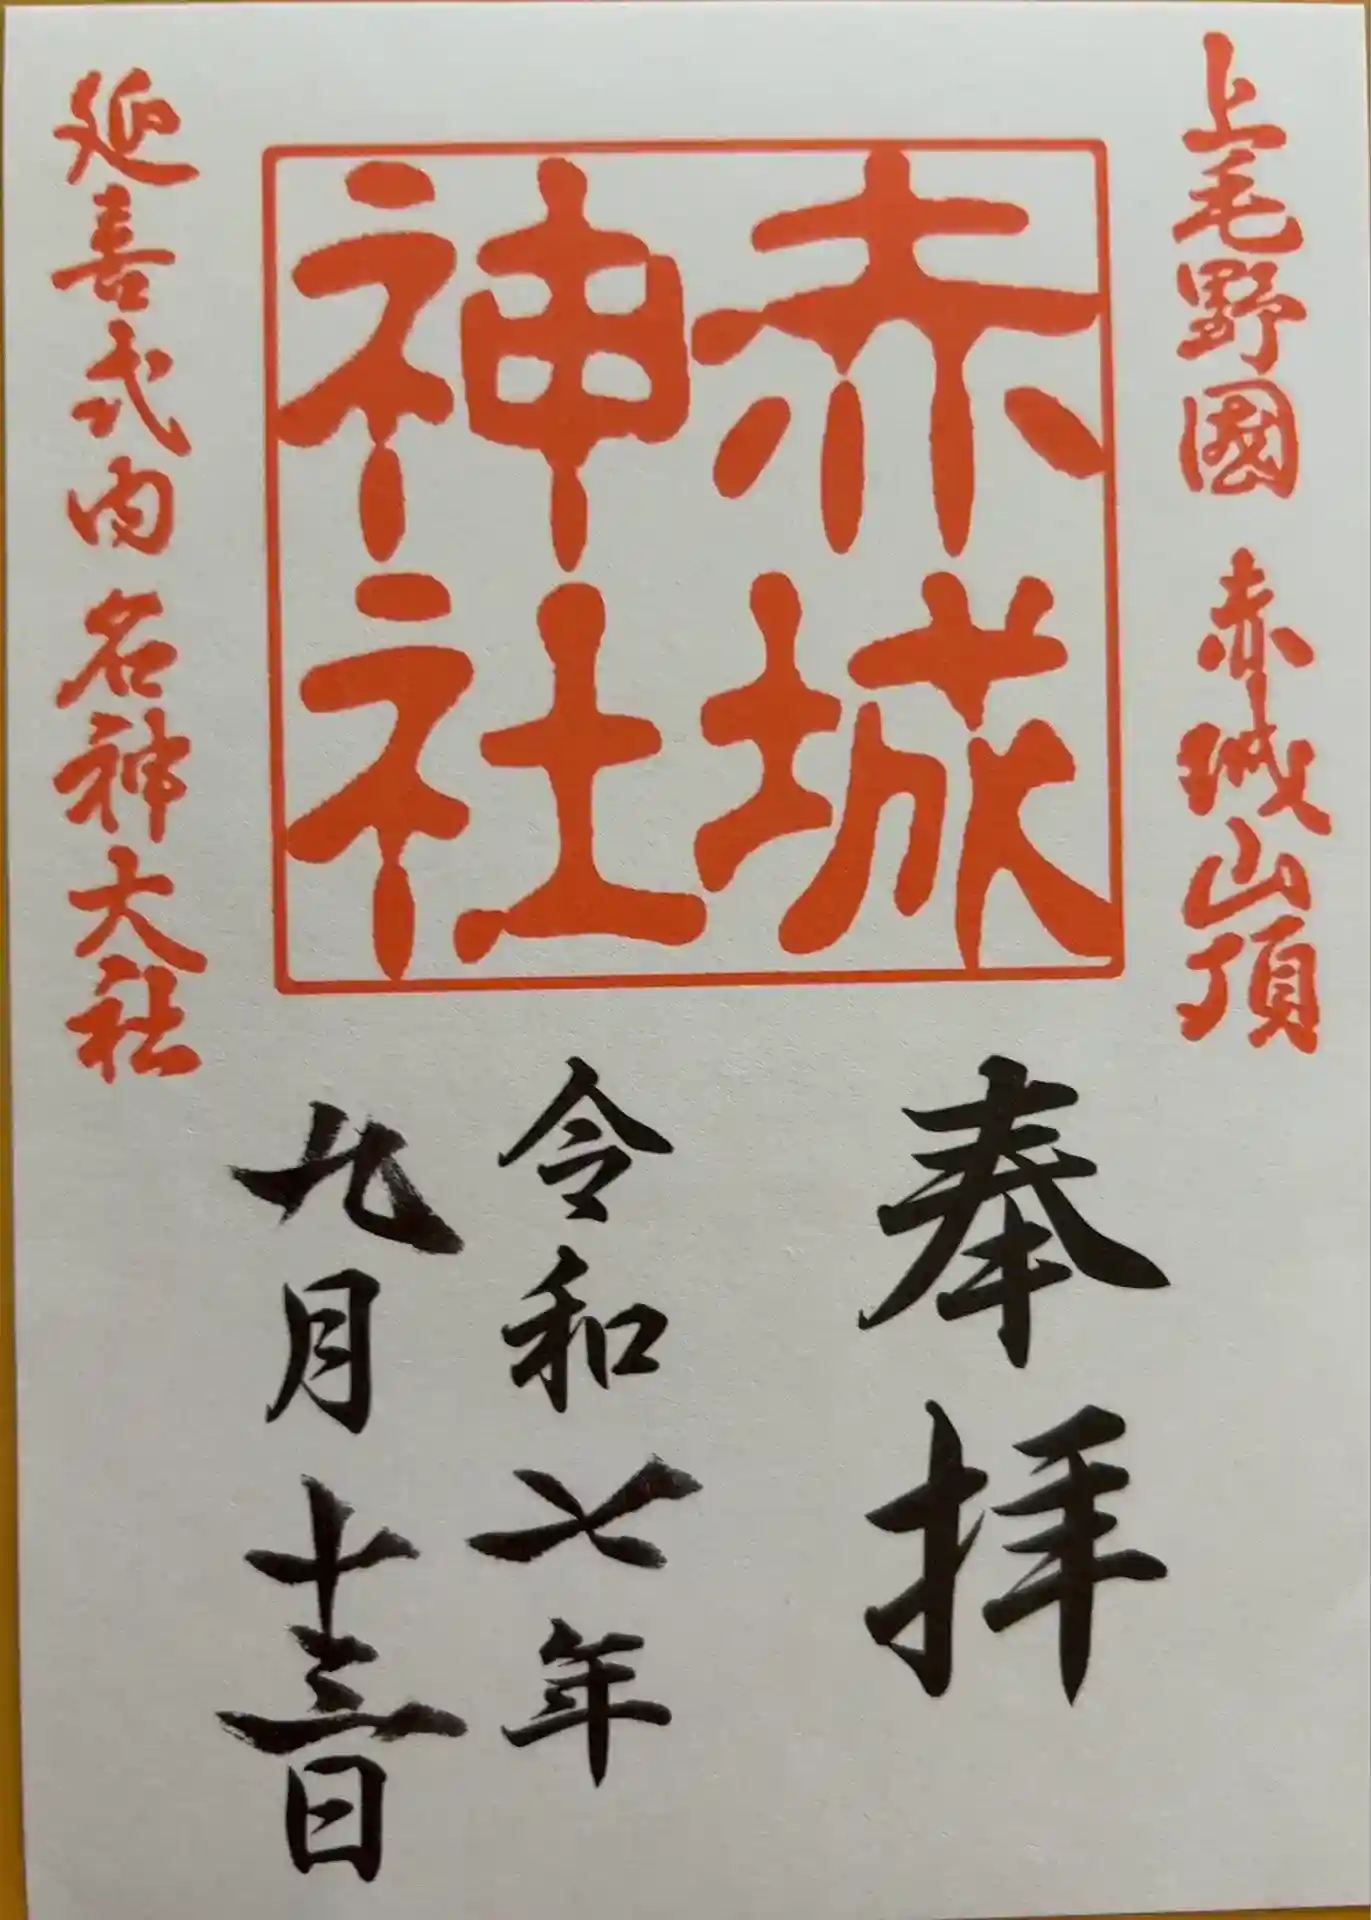 上毛野國 赤城山頂
赤城
神社
延喜式内 名神大社
奉拝
令和七年
九月十三日